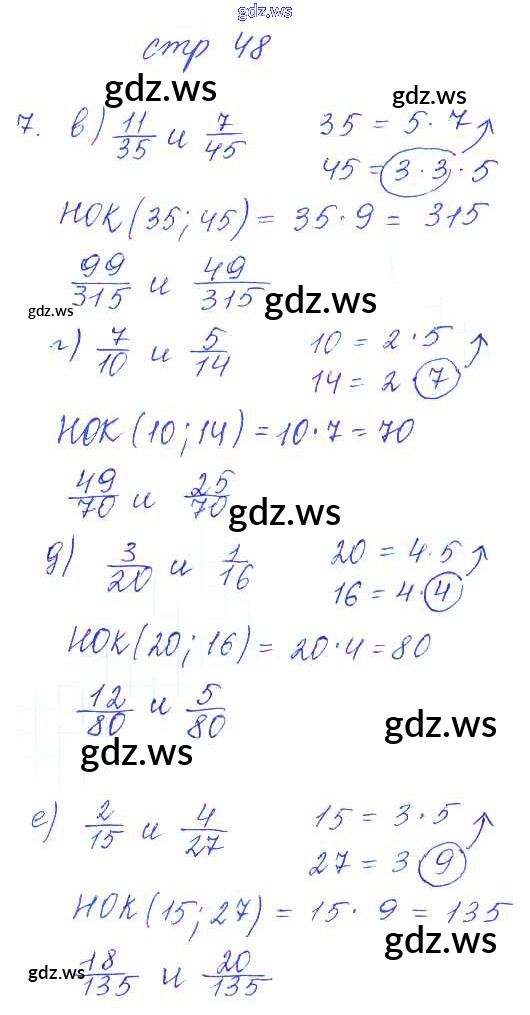 gdz.ws
стр 48
gdz.ws gdz.ws
7. в) 11/35 и 7/45 35 = 5 · 7
45 = 3 · 3 · 5
НОК (35; 45) = 35 · 9 = 315
99/315 и 49/315
gdz.ws gdz.ws
г) 7/10 и 5/14 10 = 2 · 5
14 = 2 · 7
НОК (10; 14) = 10 · 7 = 70
49/70 и 25/70
gdz.ws
д) 3/20 и 1/16 20 = 4 · 5
16 = 4 · 4
НОК (20; 16) = 20 · 4 = 80
12/80 и 5/80
gdz.ws
gdz.ws
е) 2/15 и 4/27 15 = 3 · 5
27 = 3 9
НОК (15; 27) = 15 · 9 = 135
gdz.ws
gdz.ws 18/135 и 20/135